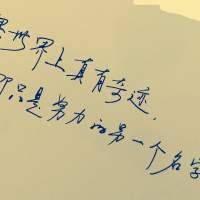 果世界上真有奇迹,
那只是努力的另一个名字